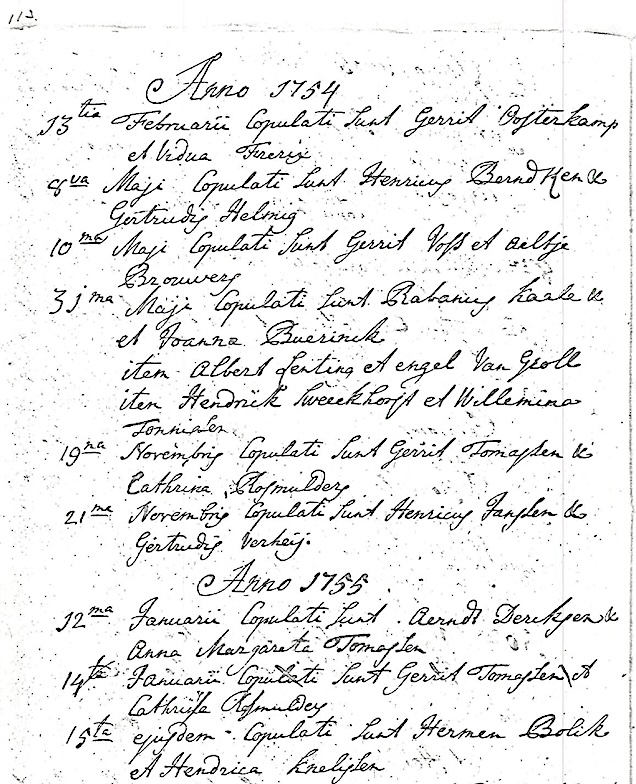 113.
Anno 1754
13tia Februarii Copulati Sunt Gerrit Oosterkamp
et Vidua
8va Maji Copulati Sunt Henricus Berndsen &
Gertrudis Helmig
10ma Maji Copulati Sunt Gerrit Voss et Aeltje
Brouwers
31ma Maji Copulati Sunt Rabanus Kaale &
et Joanna Buerinck
item Albert Senting et engel Van Groll
item Hendrik Sweekhorst et Willemina
Tonnissen
19na Novembris Copulati Sunt Gerrit Tomassen &
Cathrina Rosmulders
21ma Novembris Copulati Sunt Henricus Janssen &
Gertrudis Verheij.
Anno 1755
12ma Januarii Copulati Sunt Aerndt Dercksen &
Anna Margareta Tomassen
14ta Januarii Copulati Sunt Gerrit Tomassen et
Rosmulders
15ta ejusdem Copulati Sunt Hermen Bolik
et Hendrica Knelissen